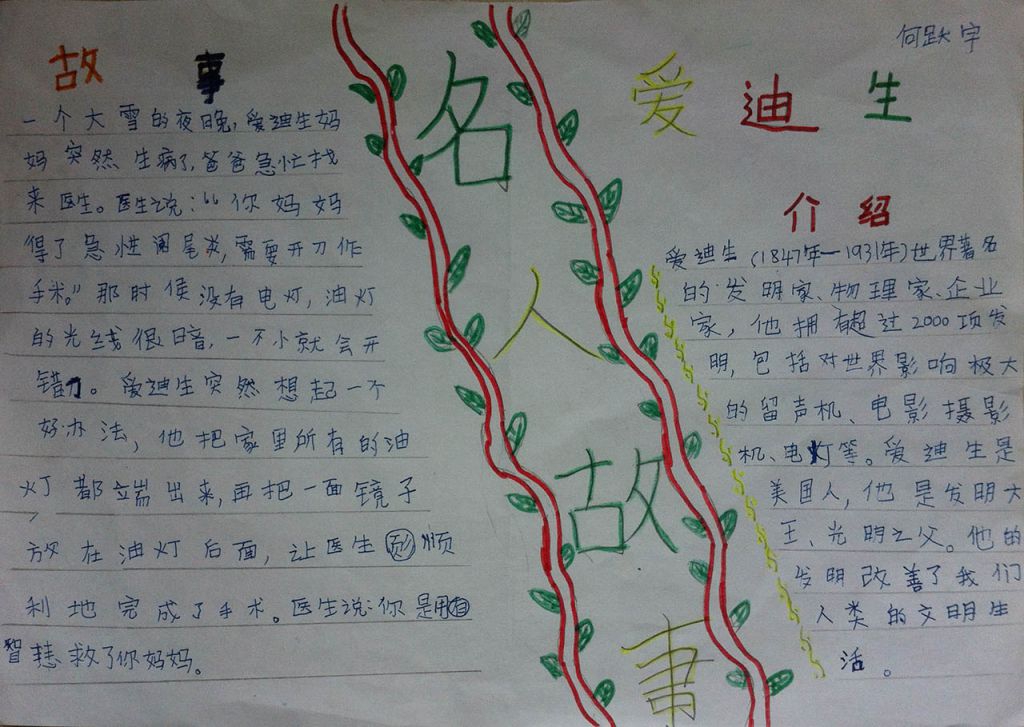 故事
一个大雪的夜晚,爱迪生妈
妈突然生病了,爸爸急忙找
来医生。医生说:“你妈妈
得了急性阑尾炎,需要开刀作
手术。”那时候没有电灯,油灯
的光线很暗,一不小就会开
错刀。爱迪生突然想起一个
好办法,他把家里所有的油
灯都端出来,再把一面镜子
放在油灯后面,让医生顺
利地完成了手术。医生说:你是用自
智慧救了你妈妈。
名人故事
何跃宇
爱迪生
介绍
爱迪生(1847年—1931年)世界著名
的发明家、物理家、企业
家,他拥有超过2000项发
明,包括对世界影响极大
的留声机、电影摄影
机、电灯等。爱迪生是
美国人,他是发明大
王、光明之父。他的
发明改善了我们
人类的文明生
活。